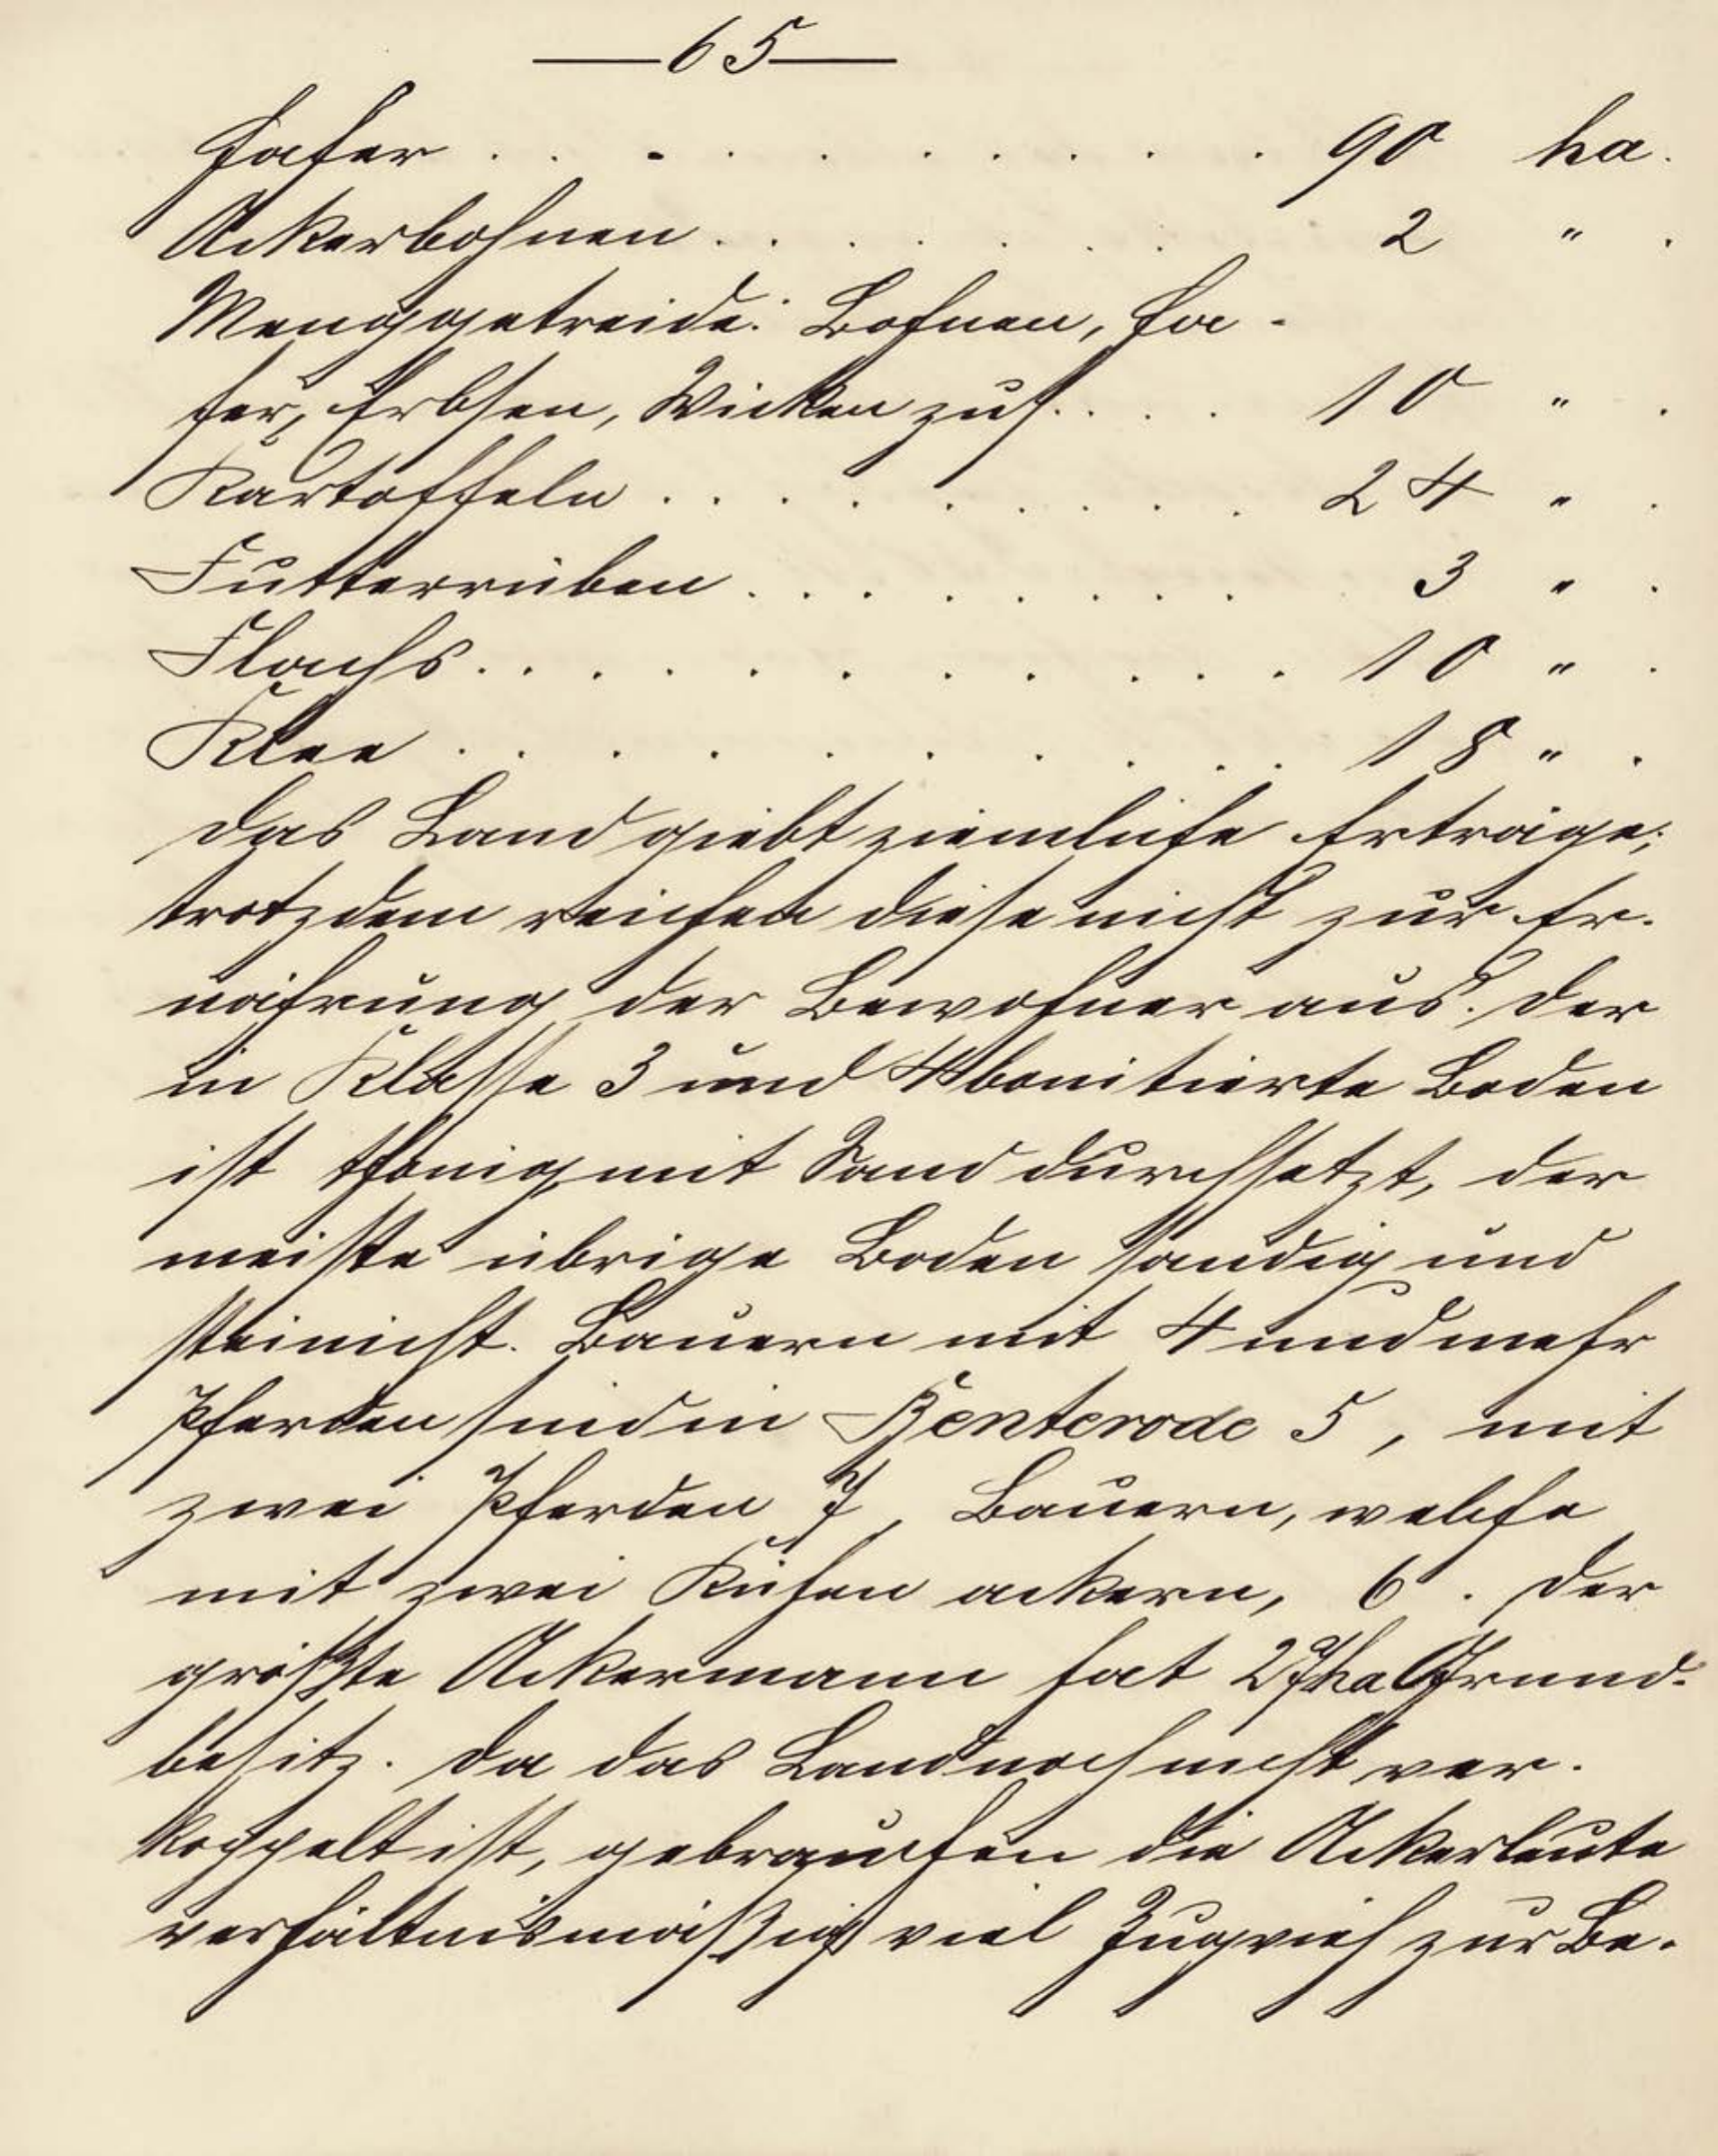 — 65 —
Hafer . . . . . . . . . . . 90 ha.
Ackerbohnen . . . . . . . 2 " .
Menggetreide: Bohnen, Ha-
fer, Erbsen, Wicken zus. . . . 10 " .
Kartoffeln . . . . . . . . . . 24 " .
Futterrüben . . . . . . . . . 3 " .
Flachs . . . . . . . . . . . . 10 " .
Klee . . . . . . . . . . 18 " .
Das Land giebt ziemliche Erträge;
trotzdem reichen diese nicht zur Er-
nährung der Bewohner aus. Der
in Klasse 3 und 4 bonitierte Boden
ist thonig, mit Sand durchsetzt, der
meiste übrige Boden sandig und
steinicht. Bauern mit 4 und mehr
Pferden sind in Benterode 5, mit
zwei Pferden 7, Bauern, welche
mit zwei Kühen ackern, 6. Der
größte Ackermann hat 27 ha Grund-
besitz. Da das Land noch nicht ver-
koppelt ist, gebrauchen die Ackerleute
verhältnismäßig viel Zugvieh zur Be-